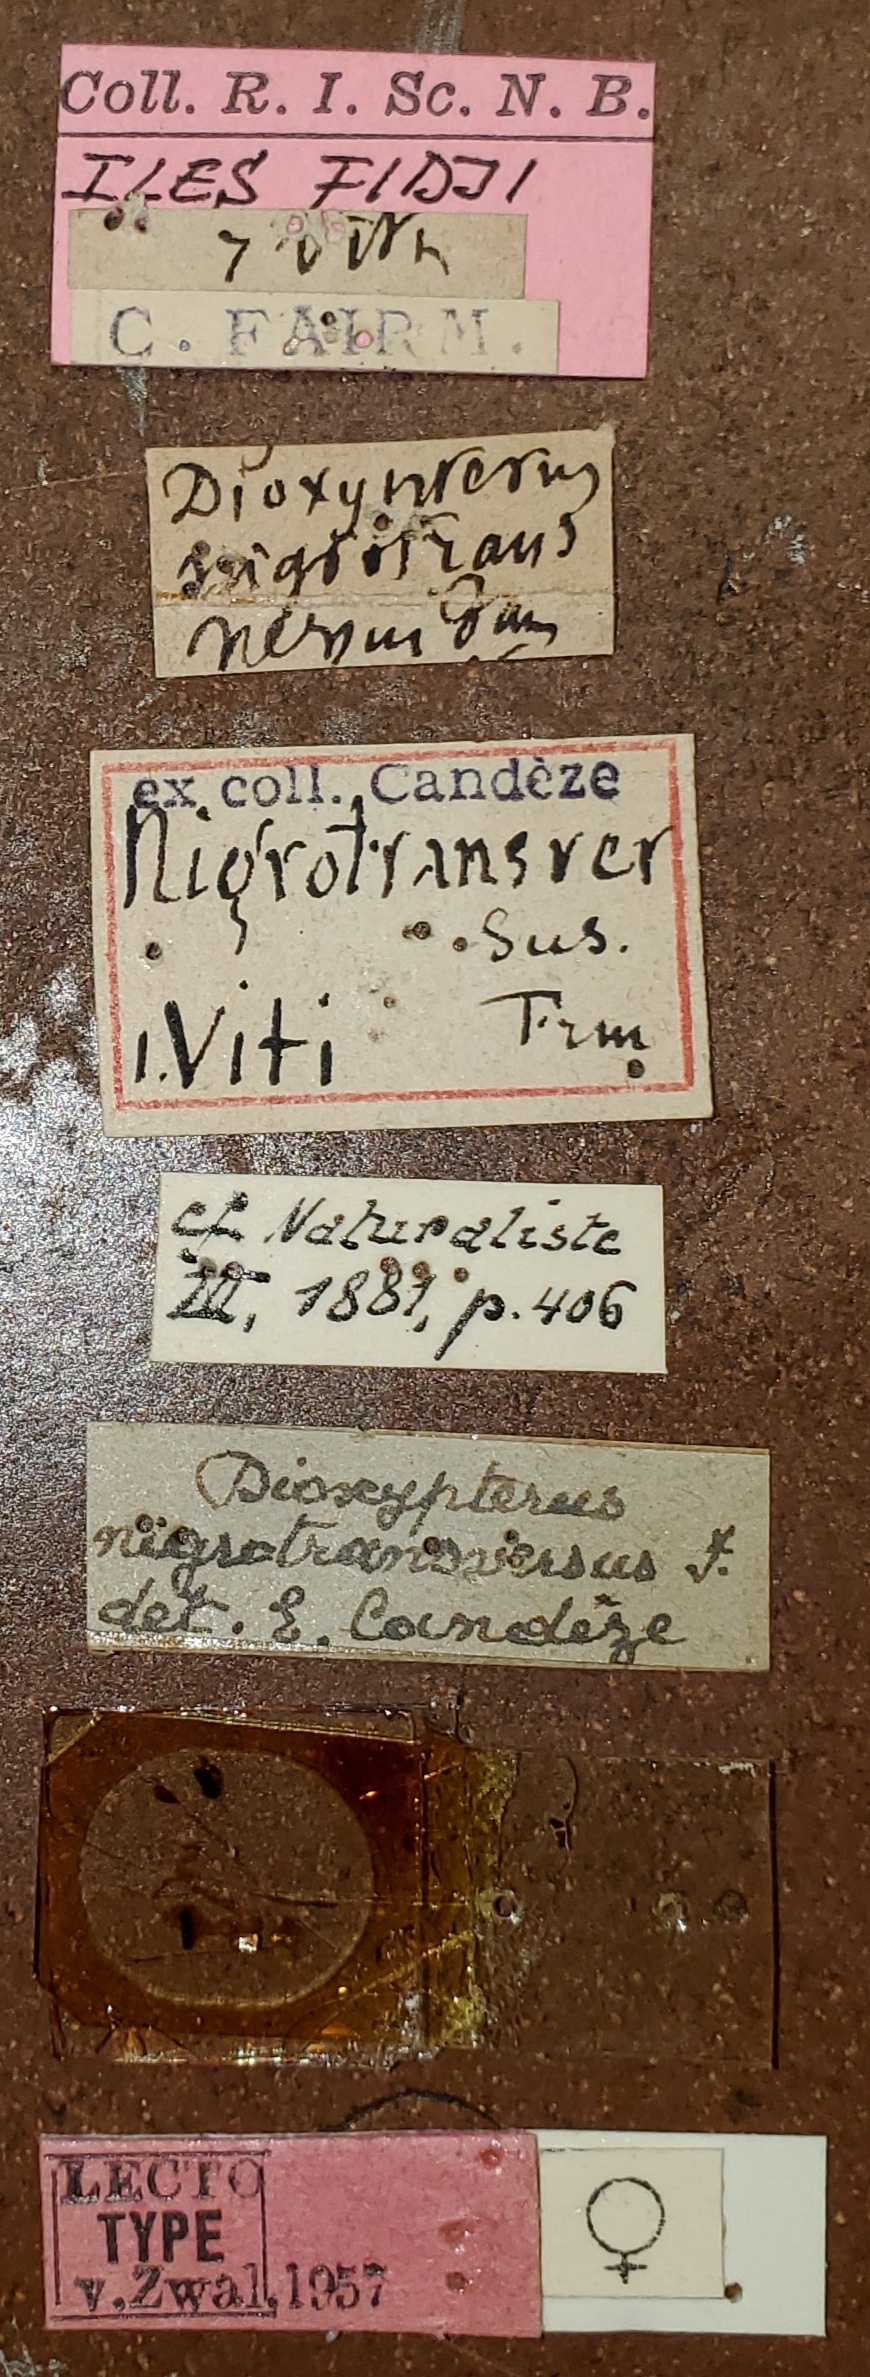 Coll. R. I. Sc. N. B.
ILES FIDJI
C. FAIRM.
Dioxypterus
nigrotrans
versus Fairm
ex coll. Candèze
Nigrotransver
sus.
I. Viti Frm
cf. Naturaliste
III, 1881, p. 406
Dioxypterus
nigrotransversus F.
det. E. Candèze
LECTO
TYPE
v.Zwal.1957
♀